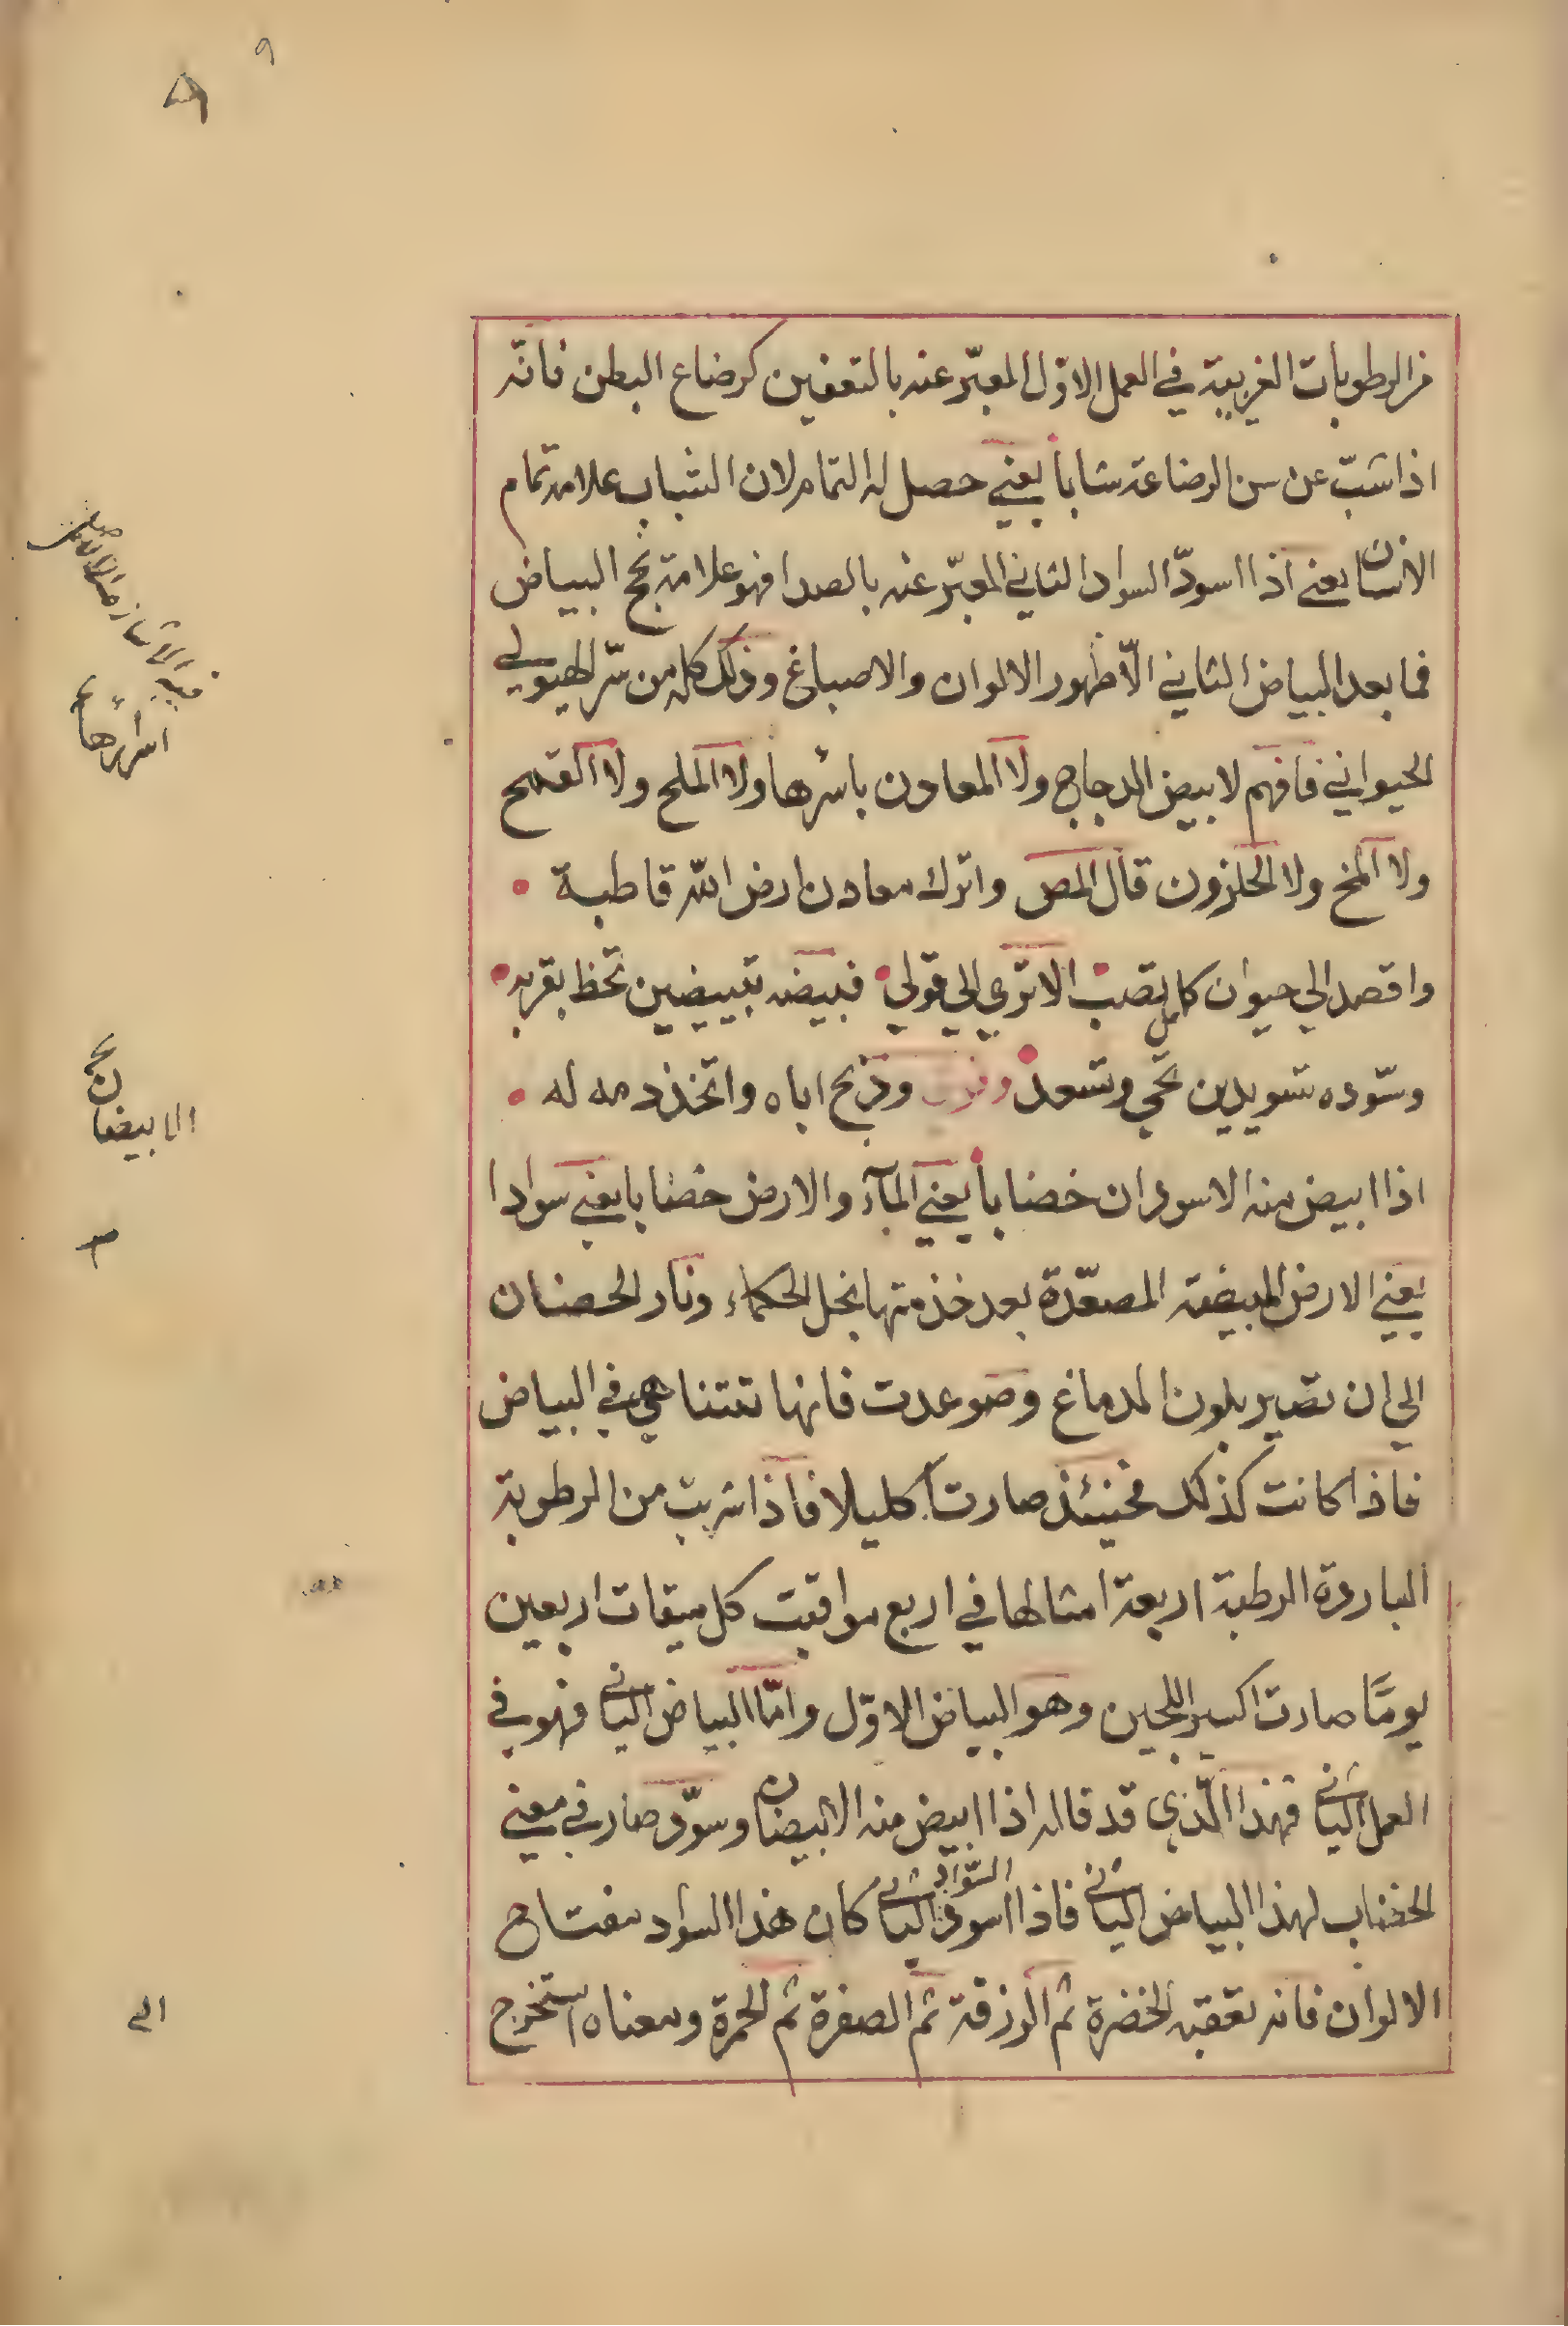 ٩
٨
من الرطوبات الغريبة في العمل الاوّل المعبّر عنه بالتعفين كرضاع البطن فانّه
اذا شبّ عن سن الرضاعة شاباً يعني حصل له التمام لان الشباب علامة تمام
الانسان يعني اذا اسودّ السواد الثاني المعبّر عنه بالصدا فهو علامة نجح البياض
فما بعد البياض الثاني الّا ظهور الالوان والاصباغ وذلك كله من سّر الهيولي
الحيواني فافهم لا بيض الدجاج ولا المعادن باسرها ولا الملح ولا القمح
ولا المخ ولا الحلزون قال المص واترك معادن ارض الله قاطبة
واقصد الي حيوان كامل تصب الا تري الي قولي فبيضه تبييضين تحظ بقربه
وسّوده تسويدين تحي وتسعد وذبح اباه واتخذ دمه له
اذا ابيض منه الاسودان خضاباً يعني المآء والارض خضابا يعني سوادا
يعني الارض المبيضة المصعّدة بعد خذمتها بخل الحكماء ونار الحضان
الي ان تصير بلون الدماغ وصوعدت فانها تتناهي في البياض
فاذا كانت كذلك فحينئذ صارت اكليلا فاذا شربت من الرطوبة
الباردة الرطبة اربعة امثالها في اربع مواقيت كل ميقات اربعين
يومًا صارت اكسير اللجين وهو البياض الاوّل وامّا البياض الثاني فهو في
العمل الثاني فهذا الّذي قد قاله اذا ابيض منه الابيضان وسوّد صار في معني
الخضاب لهذا البياض الثاني فاذا اسود السّواد الثاني كان هذا السواد مفتاح
الالوان فانه تعقبه الخضرة ثم الزرقة ثم الصفرة ثم الحمرة ومعناه استخرج
اسرارها
الابيضان
الي